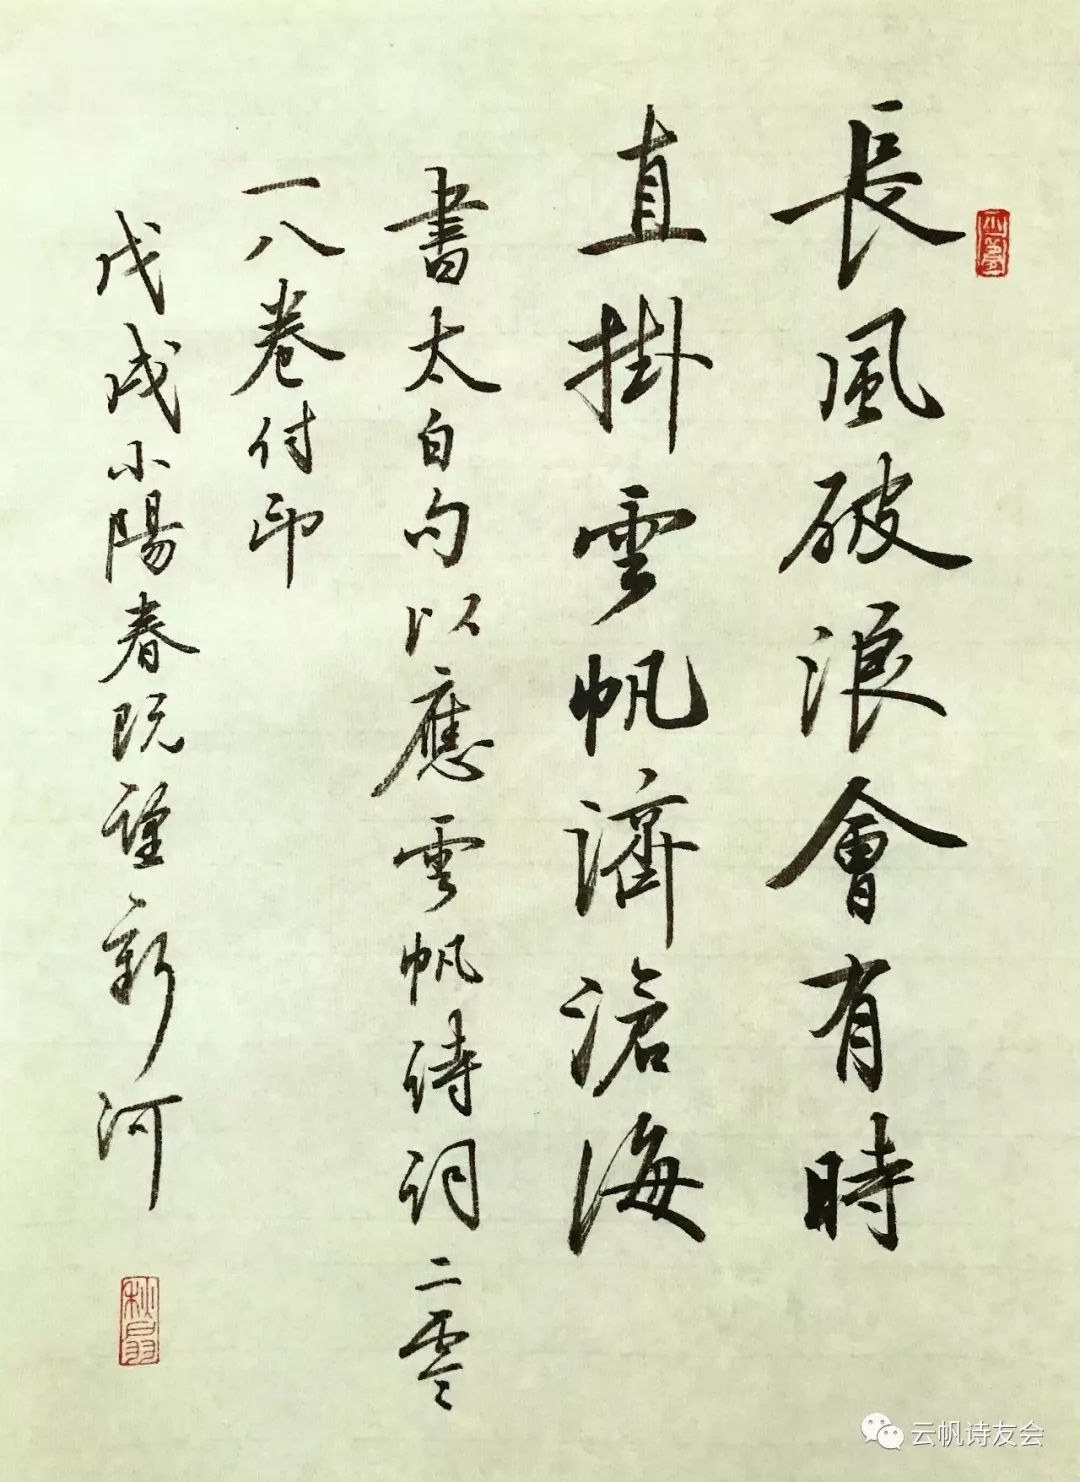 長風破浪會有時
直掛雲帆濟滄海
書太白句以應雲帆詩詞二零
一八卷付印
戊戌小陽春既望新河
云帆诗友会